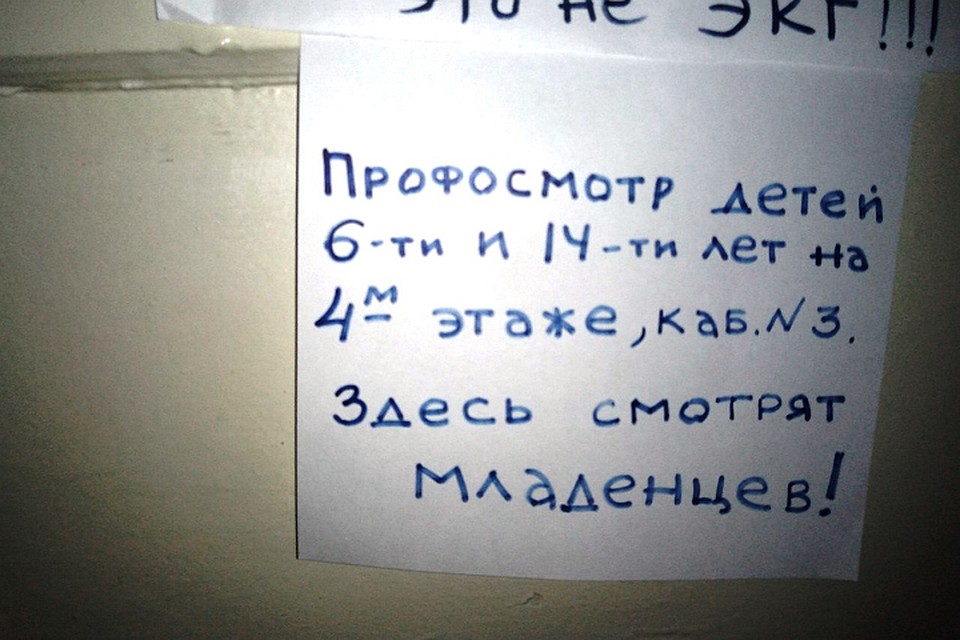 это не ЭКГ!!!
Профосмотр детей
6-ти и 14-ти лет на
4м этаже, каб. N 3.
Здесь смотрят
младенцев!